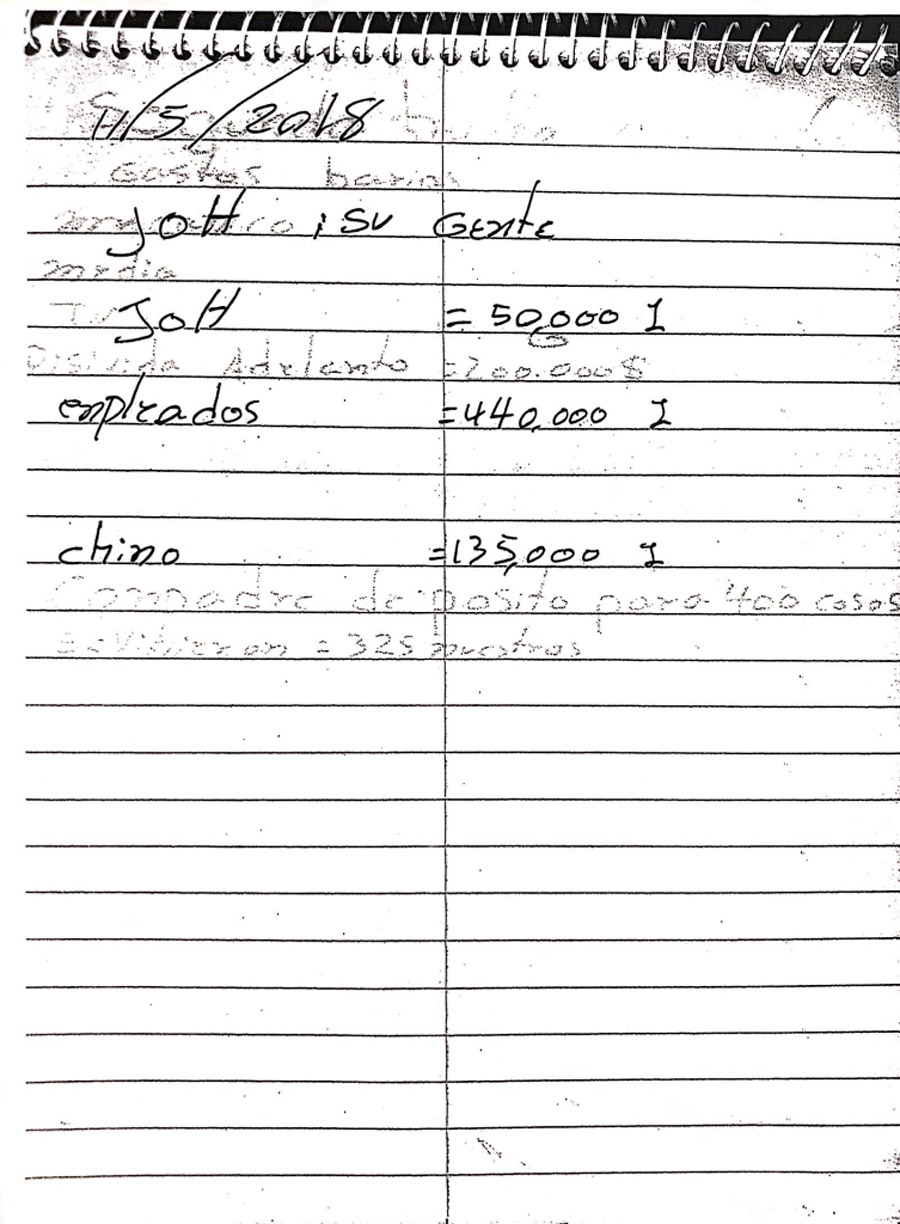 11/5/2018
Gastos barios
JOH i SU GENtE
media
JOH = 50,000 L
Adelanto = 200.000$
enpleados = 440,000 L
chino = 135,000 L
Comadre deposito para 400 cosas
= 325 nuestras